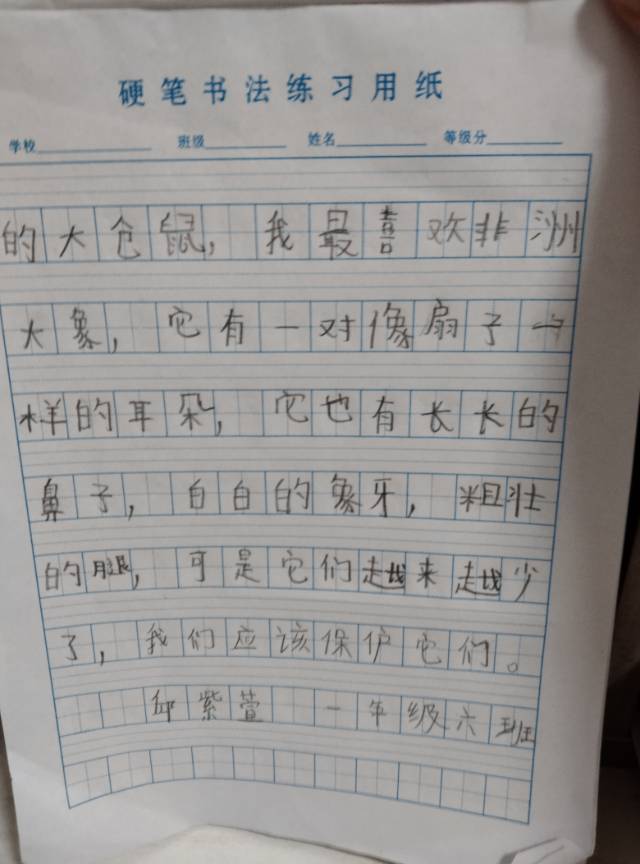 硬笔书法练习用纸
学校 班级 姓名 等级分
的大仓鼠，我最喜欢非洲
大象，它有一对像扇子一
样的耳朵，它也有长长的
鼻子，白白的象牙，粗壮
的腿，可是它们越来越少
了，我们应该保护它们。
邱紫萱 一年级六班